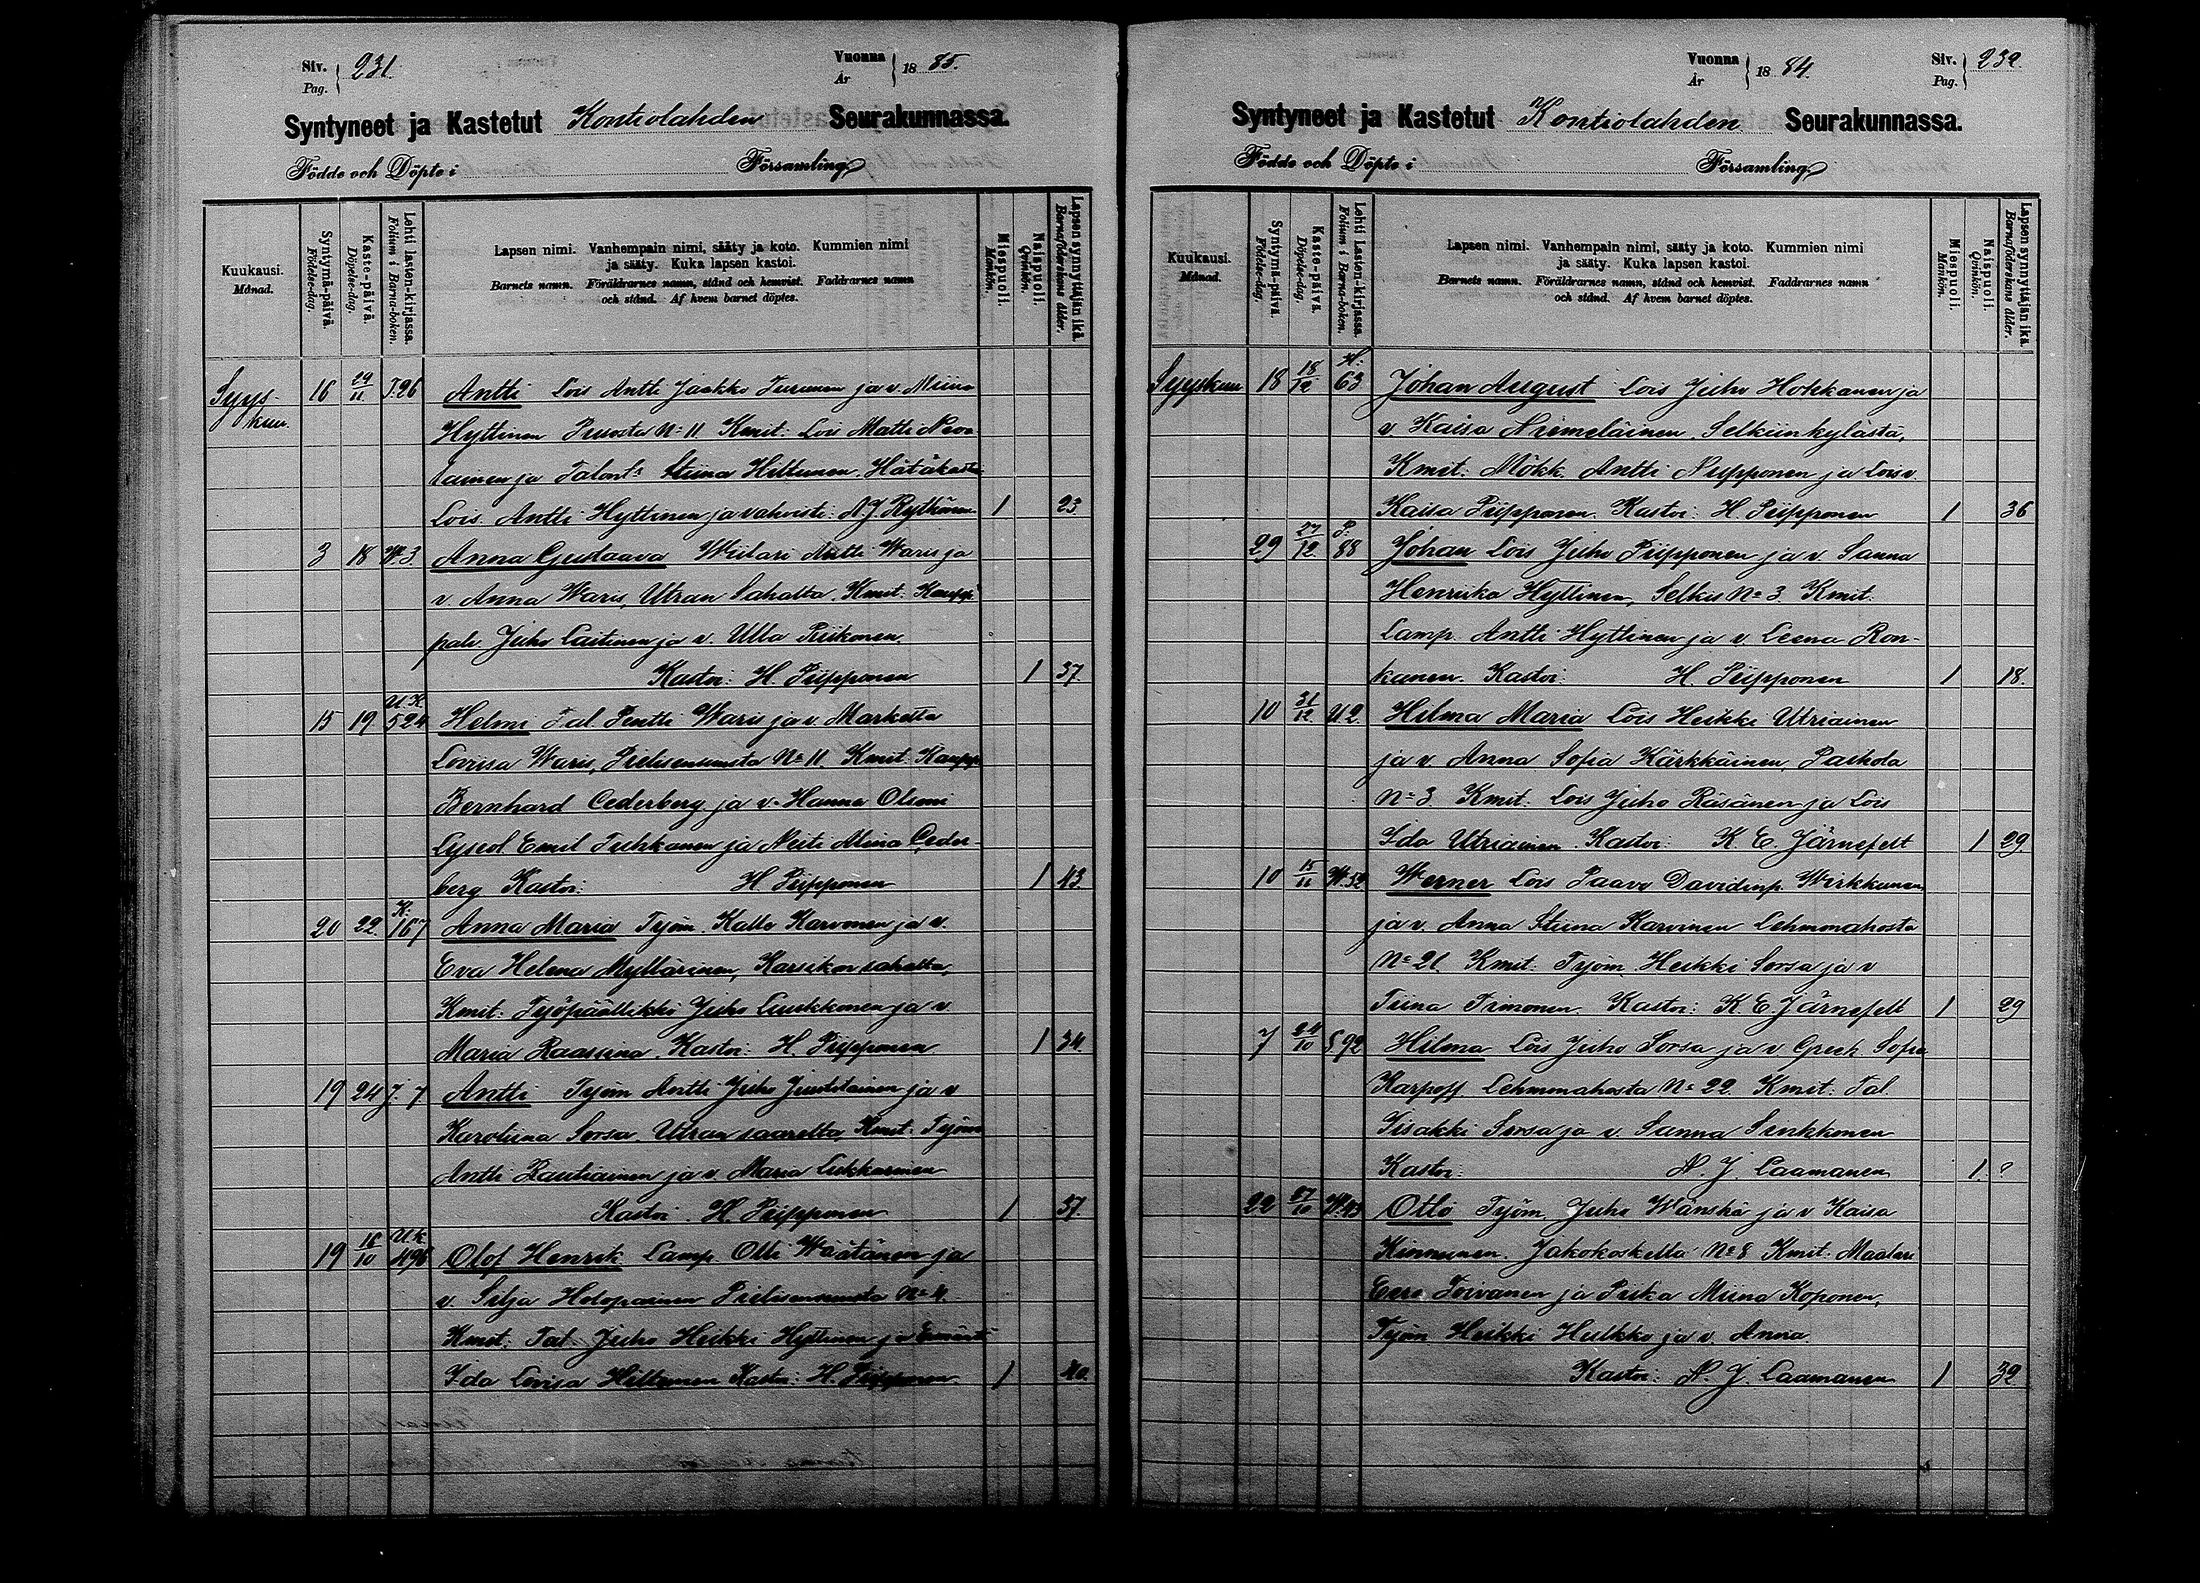 Siv. Pag. 231. Vuonna År 1885.
Syntyneet ja Kastetut Kontiolahden Seurakunnassa.
Födde och Döpte i Församling
Kuukausi. Månad.
Syntymä-päivä. Födelse-dag.
Kaste-päivä. Döpelse-dag.
Lehti Lasten-kirjassa. Folium i Barna-boken.
Lapsen nimi. Vanhempain nimi, sääty ja koto. Kummien nimi
ja sääty. Kuka lapsen kastoi.
Barnets namn. Föräldrarnes namn, stånd och hemvist. Faddrarnes namn
och stånd. Af hvem barnet döptes.
Miespuoli. Mankön.
Naispuoli. Qvinkön.
Lapsen synnyttäjän ikä. Barnaföderskans ålder.
Syys- 16 29/11 T.26 Antti Lois Antti Jaakko Turunen ja v. Miina
kuu. Hyttinen Puuosta No 11. Kmit: Lois Matti
tainen ja Talont. Stiina Hiltunen. Hätäkaste
Lois Antti Hyttinen ja vahvisti: A. J. Rytkönen 1 23
3 18 W.3. Anna Gustaava Wiilari Antti Waris ja
v. Anna Waris, Utran Sahalta. Kmit: Kaupp
palv. Juho Laitinen ja v. Ulla Riikonen.
Kastoi: H. Piipponen 1 37.
15 19 U.K. 524 Helmi Tal. Pentti Waris ja v. Marketta
Lovisa Waris, Pielisensuusta No 11. Kmit: Kaupp
Bernhard Cederberg ja v. Hanna Olsoni
Lyseol. Emil Tuhkanen ja Neiti Miina Ceder-
berg Kastoi: H Piipponen 1 43.
20 22. K: 167 Anna Maria Työm. Kalle Karvonen ja v.
Eva Helena Myllärinen, Karsikon sahalta,
Kmit: Työpäällikkö Juho Luukkonen ja v.
Maria Raassina. Kastoi: H. Piipponen 1 34.
19 24 J. 7 Antti Työm Antti Juho Juutilainen ja v
Karoliina Sorsa. Utran saarelta Kmit: Työm
Antti Rautiainen ja v. Maria Lukkarinen
Kastoi. H. Piipponen 1 37.
19 16/10 U.k. 496 Olof Henrik Lamp. Olli Wäätänen ja
v. Silja Holopainen Pielisensuusta No 4.
Kmit: Tal. Juho Heikki Hyttinen ja Emäntä
Ida Lovisa Hiltunen Kastoi: H. Piipponen. 1 40.
Vuonna År 1884. Siv. Pag. 232.
Syntyneet ja Kastetut Kontiolahden Seurakunnassa.
Födde och Döpte i Församling
Kuukausi. Månad.
Syntymä-päivä. Födelse-dag.
Kaste-päivä. Döpelse-dag.
Lehti Lasten-kirjassa. Folium i Barna-boken.
Lapsen nimi. Vanhempain nimi, sääty ja koto. Kummien nimi
ja sääty. Kuka lapsen kastoi.
Barnets namn. Föräldrarnes namn, stånd och hemvist. Faddrarnes namn
och stånd. Af hvem barnet döptes.
Miespuoli. Mankön.
Naispuoli. Qvinkön.
Lapsen synnyttäjän ikä. Barnaföderskans ålder.
Syyskuu 18 18/12 H: 63 Johan August Lois Juho Hokkanen ja
v. Kaisa Niemeläinen, Selkiinkylästä,
Kmit: Mökk. Antti Piipponen ja Lois v.
Kaisa Piipponen. Kastoi: H. Piipponen 1 36
29 27/12. P. 88 Johan Lois Juho Piipponen ja v. Sanna
Henriika Hyttinen, Selkie No 3. Kmit.
Lamp. Antti Hyttinen ja v. Leena Ron-
kanen. Kastoi: H. Piipponen 1 18.
10 31/12 U2. Hilma Maria Lois Heikki Utriainen
ja v. Anna Sofia Kärkkäinen, Paihola
No 3. Kmit: Lois Juho Räsänen ja Lois
Ida Utriainen. Kastoi: K. E. Järnefelt 1 29.
10 15/11 W.52 Werner Lois Paavo Davidinp. Wirkkunen
ja v. Anna Stiina Karvinen Lehmonahosta
No 21. Kmit: Työm. Heikki Sorsa ja v
Tiina Timonen. Kastoi: K. E. Järnefelt 1 29
7 24/10 S 92 Hilma Lois Juho Sorsa ja v Greek. Sofia
Karpoff Lehmonahosta No 22. Kmit: Tal.
Iisakki Sorsa ja v. Sanna Sinkkonen
Kastoi: A. J. Laamanen 1. ?
22 27/10 W.43 Otto Työm. Juho Wänskä ja v Kaisa
Kinnunen. Jakokoskelta No 8 Kmit: Maalari
Eero Toivanen ja Piika Miina Koponen,
Työm Heikki Hulkko ja v. Anna
Kastoi: A. J. Laamanen 1 32